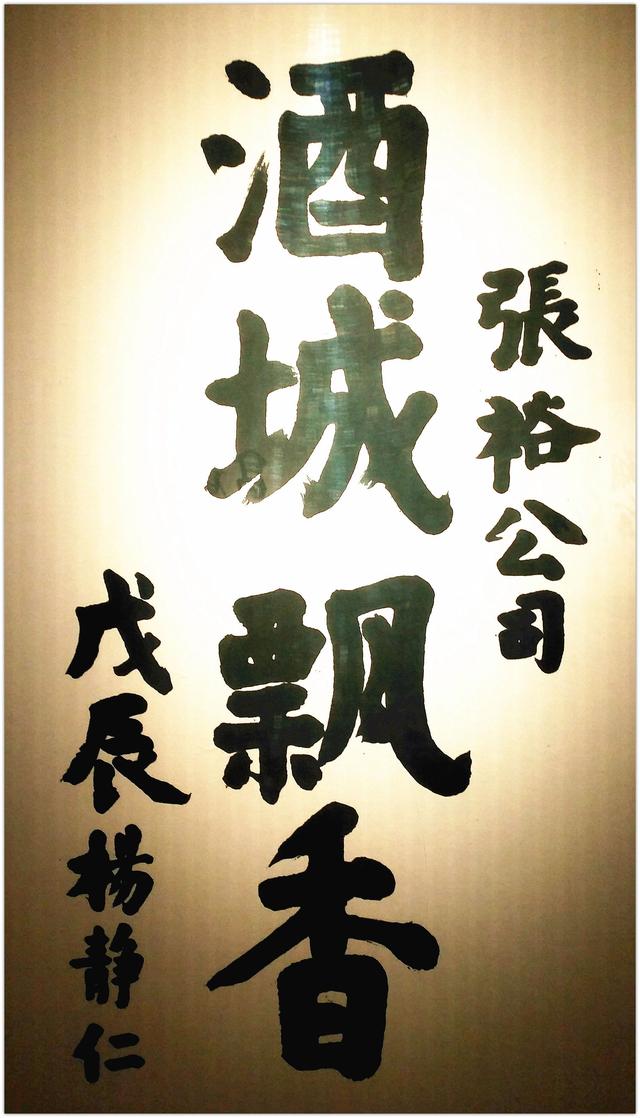 張裕公司
酒城飘香
戊辰楊静仁